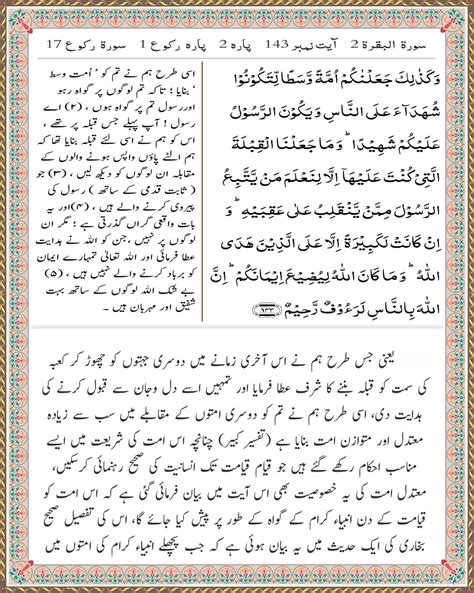 سورۃ البقرۃ 2 آیت نمبر 143 پارہ 2 پارہ رکوع 1 سورۃ رکوع 17
وَكَذٰلِكَ جَعَلْنٰكُمْ اُمَّةً وَّسَطًا لِّتَكُوْنُوْا
شُهَدَآءَ عَلَى النَّاسِ وَيَكُوْنَ الرَّسُوْلُ
عَلَيْكُمْ شَهِيْدًا ؕ وَمَا جَعَلْنَا الْقِبْلَةَ
الَّتِيْ كُنْتَ عَلَيْهَاۤ اِلَّا لِنَعْلَمَ مَنْ يَّتَّبِعُ
الرَّسُوْلَ مِمَّنْ يَّنْقَلِبُ عَلٰى عَقِبَيْهِ ؕ وَ
اِنْ كَانَتْ لَكَبِيْرَةً اِلَّا عَلَى الَّذِيْنَ هَدَى
اللّٰهُ ؕ وَمَا كَانَ اللّٰهُ لِيُضِيْعَ اِيْمَانَكُمْ ؕ اِنَّ
اللّٰهَ بِالنَّاسِ لَرَءُوْفٌ رَّحِيْمٌ ۝۱۴۳
اسی طرح ہم نے تم کو ’اُمت وسط
‘ بنایا ؛ تاکہ تم لوگوں پر گواہ رہو
اوررسول تم پر گواہ ہوں ، (۲) اے
رسول ! آپ پہلے جس قبلہ پر تھے ،
اس کو ہم نے اسی لئے قبلہ بنایا تھا کہ
ہم الٹے پاؤں واپس ہونے والوں کے
مقابلہ ان لوگوں کو دیکھ لیں ، (۳) جو
( ثابت قدمی کے ساتھ ) رسول کی
پیروی کرنے والے ہیں ، (۴) اور یہ
بات واقعی گراں گذرتی ہے ؛ مگر ان
لوگوں پر نہیں ،جن کو اللہ نے ہدایت
عطا فرمائی اور اللہ تعالٰی تمہارے ایمان
کو برباد کرنے والے نہیں ہیں ، (۵)
بے شک اللہ لوگوں کے ساتھ بہت
شفیق اور مہربان ہیں ۔
یعنی جس طرح ہم نے اس آخری زمانے میں دوسری جہتوں کو چھوڑ کر کعبہ
کی سمت کو قبلہ بننے کا شرف عطا فرمایا اور تمہیں اسے دل وجان سے قبول کرنے کی
ہدایت دی، اسی طرح ہم نے تم کو دوسری امتوں کے مقابلے میں سب سے زیادہ
معتدل اور متوازن امت بنایا ہے (تفسیر کبیر) چنانچہ اس امت کی شریعت میں ایسے
مناسب احکام رکھے گئے ہیں جو قیام قیامت تک انسانیت کی صحیح رہنمائی کرسکیں،
معتدل امت کی یہ خصوصیت بھی اس آیت میں بیان فرمائی گئی ہے کہ اس امت کو
قیامت کے دن انبیاء کرام کے گواہ کے طور پر پیش کیا جائے گا، اس کی تفصیل صحیح
بخاری کی ایک حدیث میں یہ بیان ہوئی ہے کہ جب پچھلے انبیاء کرام کی امتوں میں